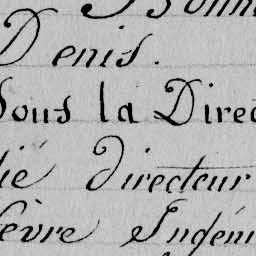 Denis.
Sous la Direc
ié directeur
èvre Ingéni